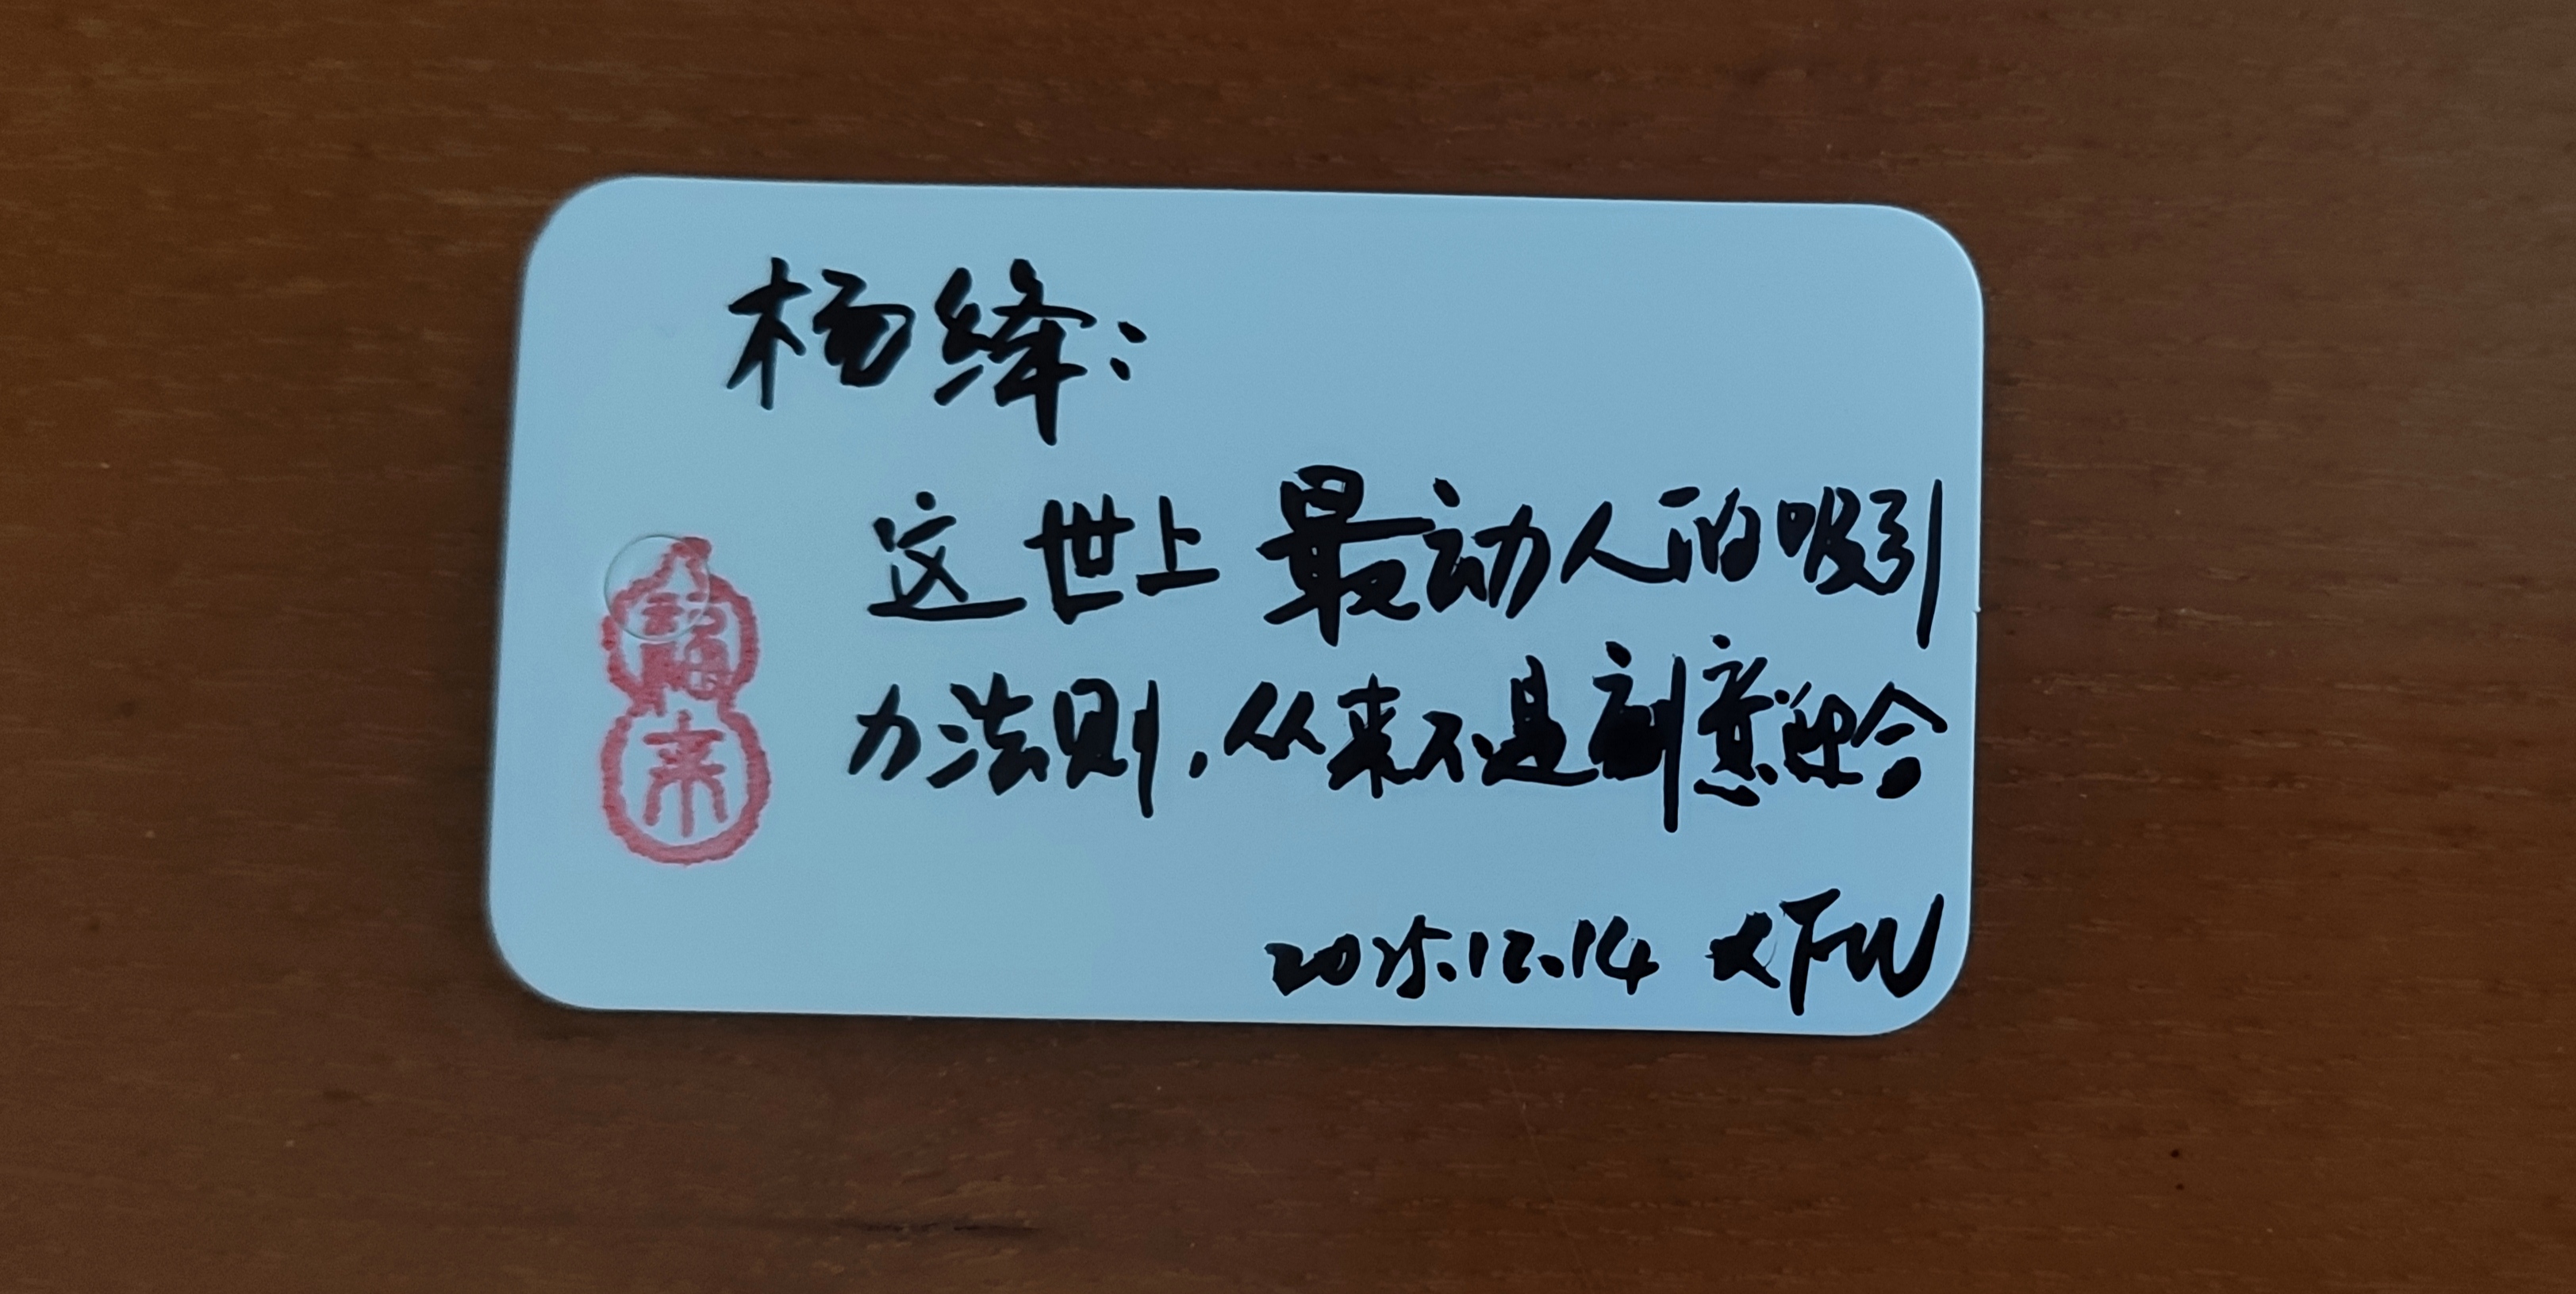 杨绛:
这世上最动人的吸引
力法则,从来不是刻意迎合
2025.12.14 大FW
福
来